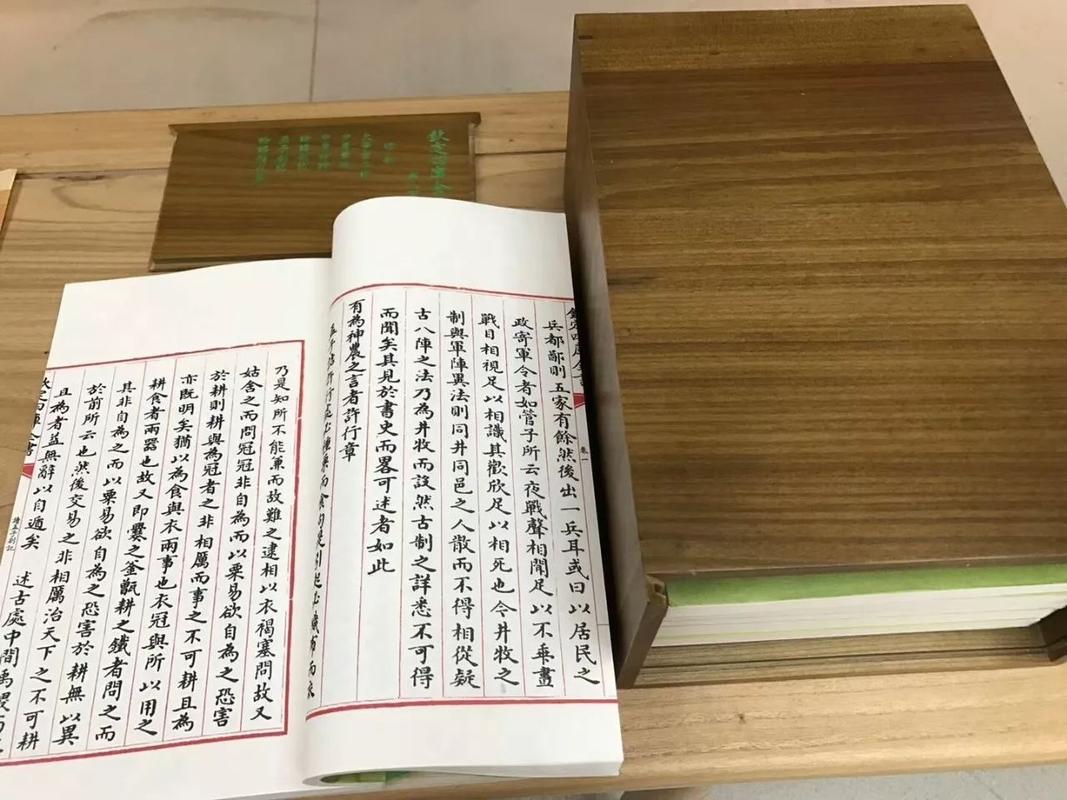 欽定四庫全
欽定四庫全書
卷一
兵都鄙則五家有餘然後出一兵耳或曰以居民之
政寄軍令者如管子所云夜戰聲相聞足以不乖晝
戰目相視足以相識其歡欣足以相死也今井牧之
制與軍陣異法則同井同邑之人散而不得相從疑
古八陣之法乃為井牧而設然古制之詳悉不可得
而聞矣其見於書史而畧可述者如此
有為神農之言者許行章
乃是知所不能兼而故難之逮相以衣褐塞問故又
姑舍之而問冠冠非自為而以粟易欲自為之恐害
於耕則耕與為冠者之非相厲而事之不可耕且為
亦既明矣猶以為食與衣兩事也衣冠與所以用之
耕食者兩器也故又即爨之釜甑耕之鐵者問之而
其非自為之而以粟易欲自為之恐害於耕無以異
於前所云也然後交易之非相厲治天下之不可耕
且為者益無辭以自遁矣 述古處中間禹稷
欽定四庫全書
讀孟子劄記